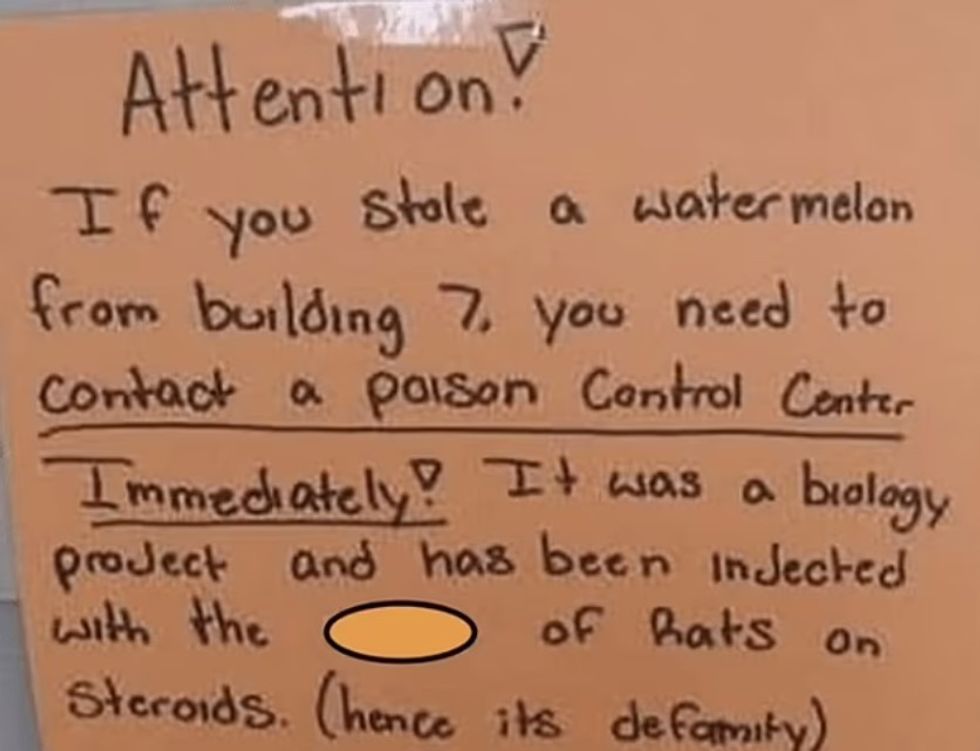 Attention!
If you stole a watermelon
from building 7, you need to
contact a poison Control Center
Immediately! It was a biology
project and has been injected
with the of Rats on
Steroids. (hence its defamity)